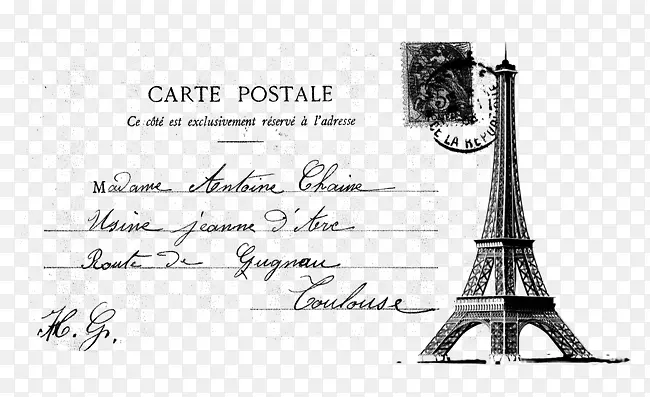 CARTE POSTALE
Ce côté est exclusivement réservé à l'adresse
DE LA REPUBLIQUE
Madame Antoine Chaine
Usine jeanne d'Arc
Route de Gugnau
Toulouse
H. G.